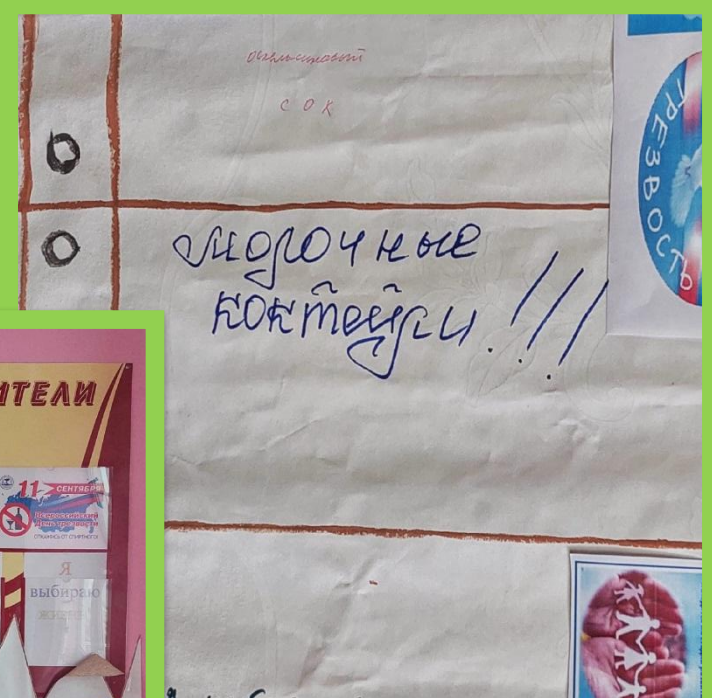 апельсиновый
сок
молочные
коктейли!!!
ТРЕЗВОСТЬ
ИТЕЛИ
11 СЕНТЯБРЯ
Всероссийский
День трезвости
ОТКАЖИСЬ ОТ СПИРТНОГО!
Я
выбираю
жизнь